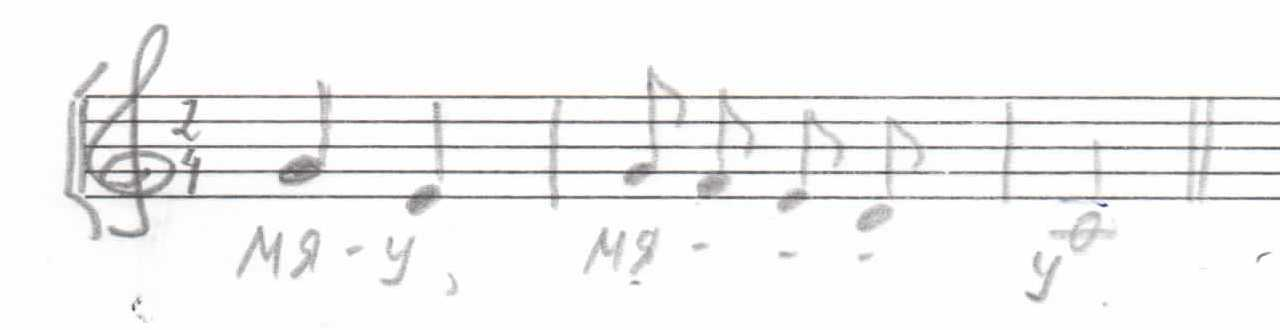 2
4
мя - у, мя - - - у.